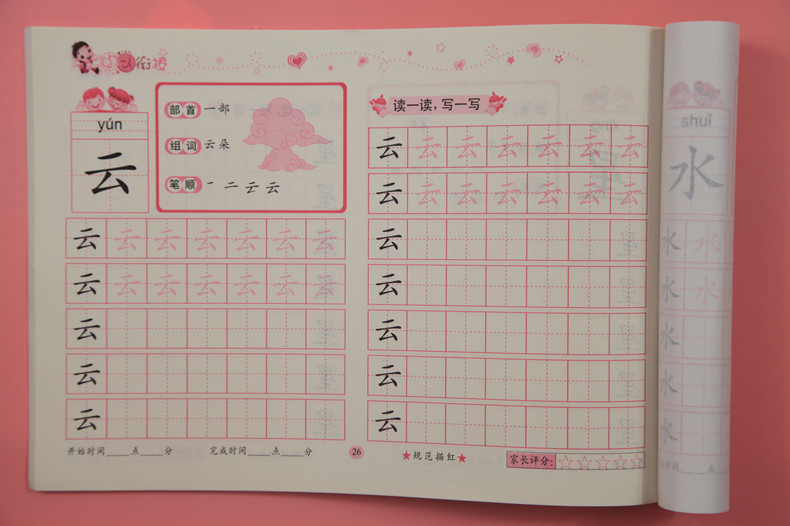 衔接
yún
云
部首 一部
组词 云朵
笔顺 一 二 云 云
云 云 云 云 云 云 云
云 云 云 云 云 云 云
云
云
云
开始时间____点____分 完成时间____点____分
26
读一读，写一写
云 云 云 云 云 云 云
云 云 云 云 云 云 云
云
云
云
云
云
★规范描红★
家长评分：☆☆☆☆☆
shuǐ
水
水 水
水 水
水
水
水
时间____点